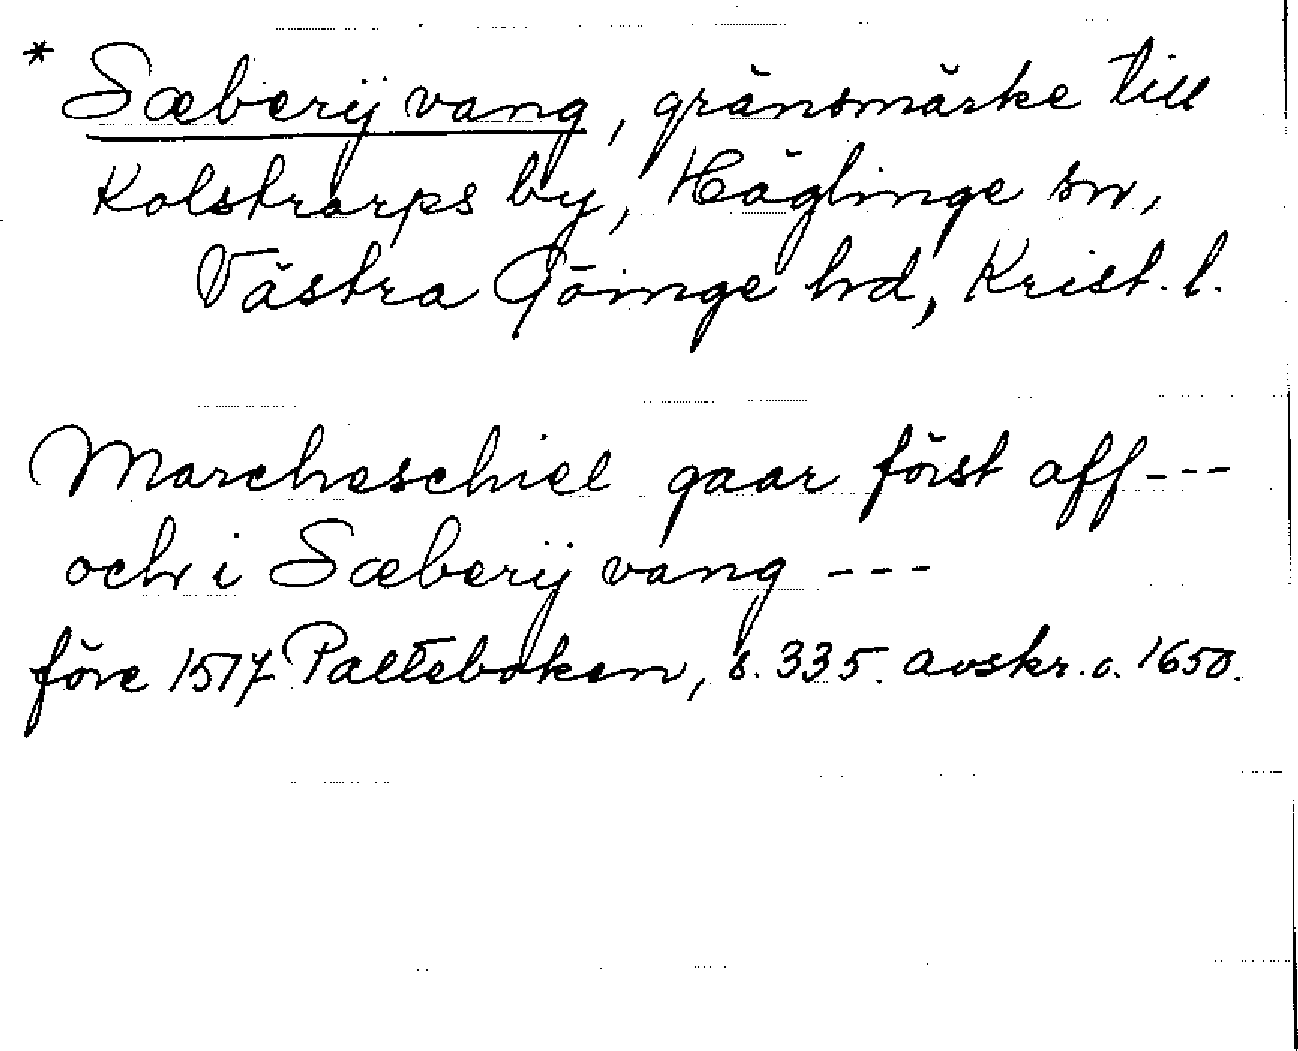 * Sæberÿ vang, gränsmärke till
Kolstrarps by, Häglinge sn,
Västra Göinge hd, Krist. l.
Marcheschiel gaar först aff---
och i Sæberÿ vang ---
före 1517 Palteboken, s. 335. avskr. c. 1650.